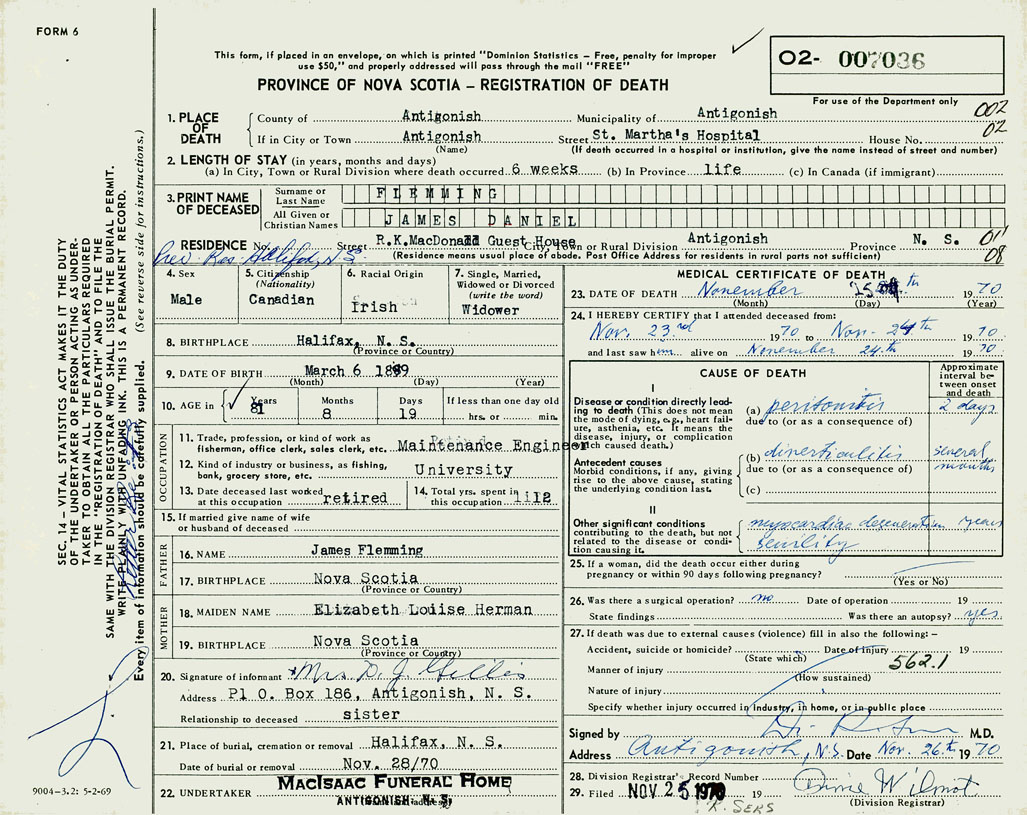 FORM 6
This form, if placed in an envelope, on which is printed "Dominion Statistics – Free, penalty for improper
use $50," and properly addressed will pass through the mail "FREE"
PROVINCE OF NOVA SCOTIA – REGISTRATION OF DEATH
02- 007036
For use of the Department only
002
02
1. PLACE OF DEATH
County of Antigonish Municipality of Antigonish
If in City or Town Antigonish Street St. Martha's Hospital House No.
(Name) (If death occurred in a hospital or institution, give the name instead of street and number)
2. LENGTH OF STAY (in years, months and days)
(a) In City, Town or Rural Division where death occurred 6 weeks (b) In Province life (c) In Canada (if immigrant)
3. PRINT NAME OF DECEASED
Surname or Last Name FLEMMING
All Given or Christian Names JAMES DANIEL
RESIDENCE No. Street R.K.MacDonald Guest House City, Town or Rural Division Antigonish Province N. S.
01
08
(Residence means usual place of abode. Post Office Address for residents in rural parts not sufficient)
Prev. Res. Halifax, N.S.
4. Sex
Male
5. Citizenship
(Nationality)
Canadian
6. Racial Origin
Irish
7. Single, Married,
Widowed or Divorced
(write the word)
Widower
8. BIRTHPLACE Halifax, N. S.
(Province or Country)
9. DATE OF BIRTH March 6 1889
(Month) (Day) (Year)
10. AGE in
Years
81
Months
8
Days
19
If less than one day old
hrs. or min.
OCCUPATION
11. Trade, profession, or kind of work as
fisherman, office clerk, sales clerk, etc. Maintenance Engineer
12. Kind of industry or business, as fishing,
bank, grocery store, etc. University
13. Date deceased last worked
at this occupation retired
14. Total yrs. spent in
this occupation
15. If married give name of wife
or husband of deceased
FATHER
16. NAME James Flemming
17. BIRTHPLACE Nova Scotia
(Province or Country)
MOTHER
18. MAIDEN NAME Elizabeth Louise Herman
19. BIRTHPLACE Nova Scotia
(Province or Country)
20. Signature of informant Mrs D. J. Gillis
Address Pl O. Box 186, Antigonish, N. S.
Relationship to deceased sister
21. Place of burial, cremation or removal Halifax, N. S.
Date of burial or removal Nov. 28/70
22. UNDERTAKER MacIsaac Funeral Home
ANTIGONISH, N. S.
MEDICAL CERTIFICATE OF DEATH
23. DATE OF DEATH November 25th 1970
(Month) (Day) (Year)
24. I HEREBY CERTIFY that I attended deceased from:
Nov. 23rd 1970 to Nov. 24th 1970
and last saw him alive on November 24th 1970
CAUSE OF DEATH
Approximate
interval be-
tween onset
and death
I
Disease or condition directly lead-
ing to death (This does not mean
the mode of dying, e.g., heart fail-
ure, asthenia, etc. It means the
disease, injury, or complication
which caused death.)
(a) peritonitis 2 days
due to (or as a consequence of)
Antecedent causes
Morbid conditions, if any, giving
rise to the above cause, stating
the underlying condition last.
(b) diverticulitis several months
due to (or as a consequence of)
(c)
II
Other significant conditions
contributing to the death, but not
related to the disease or condi-
tion causing it.
myocardiac degeneration years
senility
25. If a woman, did the death occur either during
pregnancy or within 90 days following pregnancy?
(Yes or No)
26. Was there a surgical operation? no Date of operation 19
State findings Was there an autopsy? yes
27. If death was due to external causes (violence) fill in also the following: –
Accident, suicide or homicide? Date of injury 19
(State which) 562.1
Manner of injury
(How sustained)
Nature of injury
Specify whether injury occurred in industry, in home, or in public place
Signed by M.D.
Address Antigonish, N.S. Date Nov. 26th 1970
28. Division Registrar's Record Number
29. Filed NOV 25 1970 19
(Division Registrar)
R. SERS
SEC. 14 – VITAL STATISTICS ACT MAKES IT THE DUTY
OF THE UNDERTAKER OR PERSON ACTING AS UNDER-
TAKER TO OBTAIN ALL THE PARTICULARS REQUIRED
IN THE "REGISTRATION OF DEATH" AND TO FILE THE
SAME WITH THE DIVISION REGISTRAR WHO SHALL ISSUE THE BURIAL PERMIT.
WRITE PLAINLY WITH UNFADING INK. THIS IS A PERMANENT RECORD.
Every item of information should be carefully supplied. (See reverse side for instructions.)
9004-3.2: 5-2-69